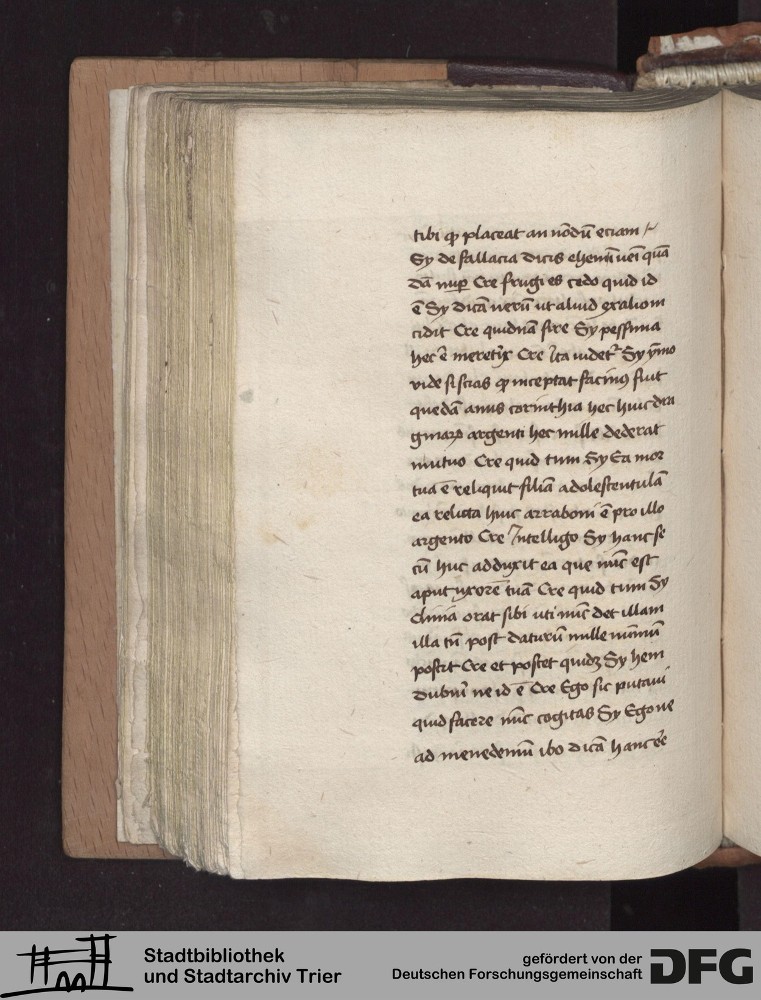 tibi qꝫ placeat an nōdū eciam
Sy de fallacia dicis ehem̄ ueī quā
dā nuꝑ Cre frugi es cedo quid id
ē Sy dicā uerū ut aliud ex aliom
cidit Cre quidnā fire Sy pessima
hec ē meretⁱx Cre Ita uidetᷣ Sy ȳmo
vide si scias qꝫ inceptat facinꝰ fuit
quedā anus corinthia hec huic dra
gmaꝝ argenti hec mille dederat
mutuo Cre quid tum Sy Ea mor
tua ē reliquit filiā adolescentulā
ea relicta huic arraboni ē pro illo
argento Cre Intelligo Sy hanc se
cū huc adduxit ea que nūc est
aput uxorē tuā Cre quid tum Sy
Clinia orat sibi uti nūc det illam
illa tn̄ post daturū mille nūmū
poscit Cre et poscet quidꝫ Sy hem
dubiuī ne id ē Cre Ego sic putaui
quid facere nūc cogitas Sy Ego ne
ad menedemū ibo dicā hanc eē
Stadtbibliothek
und Stadtarchiv Trier
gefördert von der
Deutschen Forschungsgemeinschaft
DFG